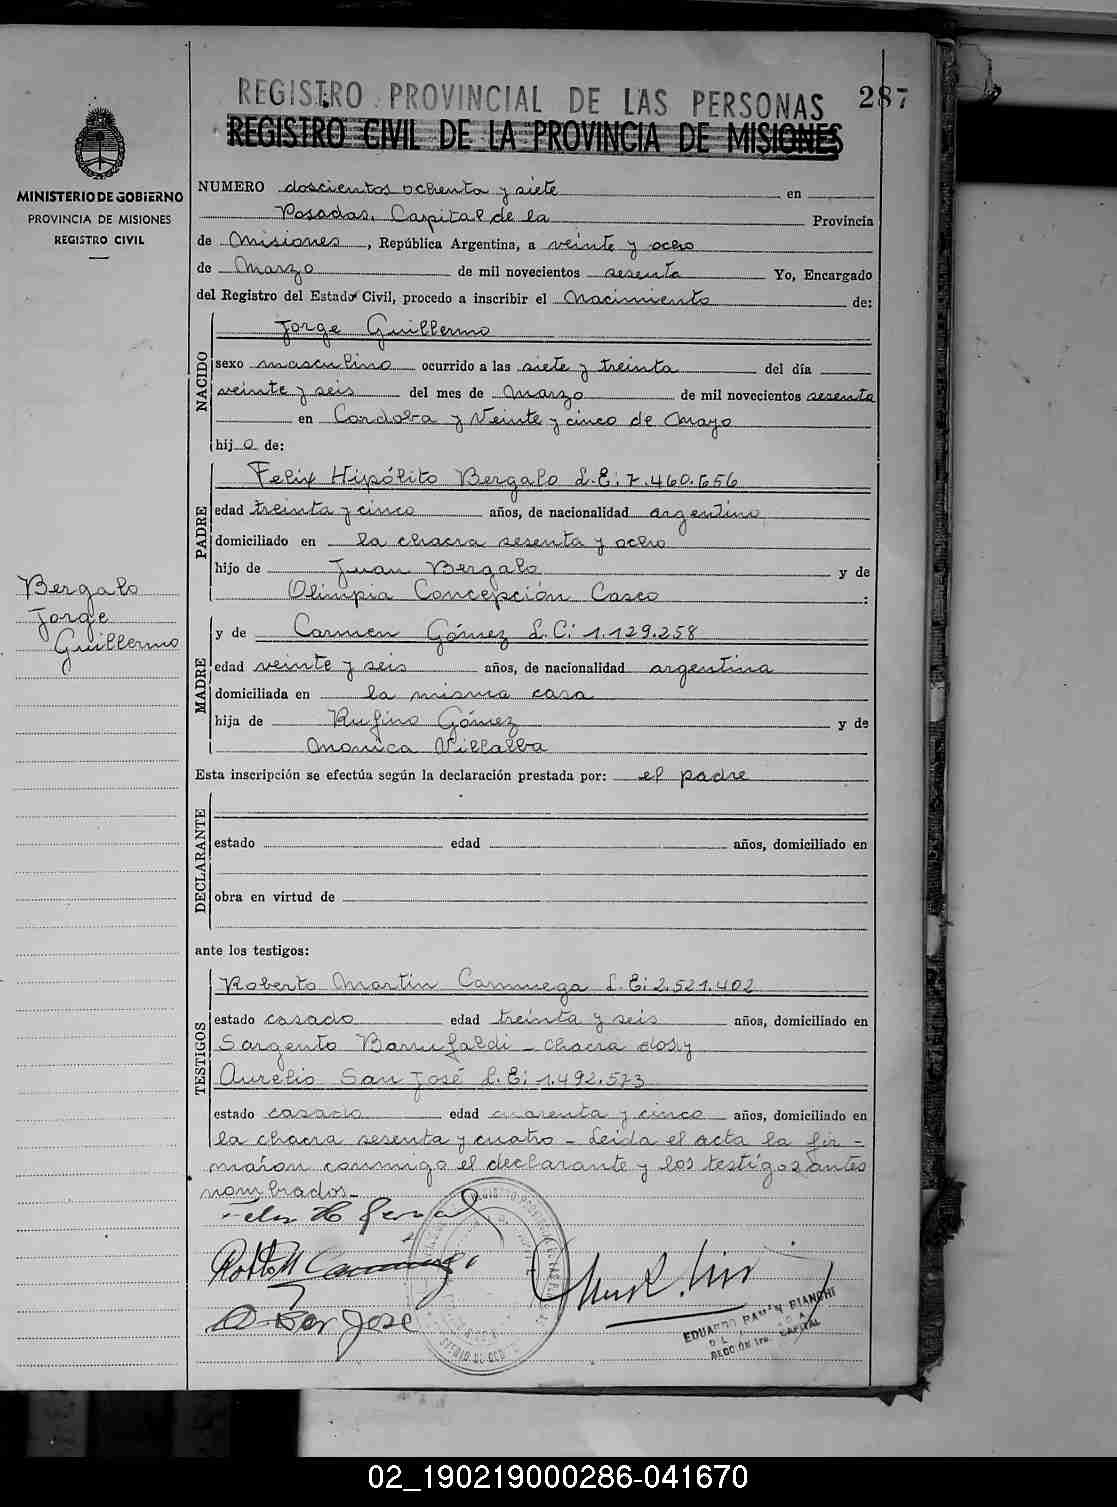 REGISTRO PROVINCIAL DE LAS PERSONAS
287
REGISTRO CIVIL DE LA PROVINCIA DE MISIONES
MINISTERIO DE GOBIERNO
PROVINCIA DE MISIONES
REGISTRO CIVIL
NUMERO doscientos ochenta y siete en
Posadas, Capital de la Provincia
de Misiones, República Argentina, a veinte y ocho
de Marzo de mil novecientos sesenta Yo, Encargado
del Registro del Estado Civil, procedo a inscribir el Nacimiento de:
NACIDO
Jorge Guillermo
sexo masculino ocurrido a las siete y treinta del día
veinte y seis del mes de Marzo de mil novecientos sesenta
en Cordoba y Veinte y cinco de Mayo
hijo de:
PADRE
Felix Hipólito Bergalo L.E: 7.460.656
edad treinta y cinco años, de nacionalidad argentino
domiciliado en la chacra sesenta y ocho
hijo de Juan Bergalo y de
Olimpia Concepción Casco :
Bergalo
Jorge
Guillermo
MADRE
y de Carmen Gómez L.C: 1.129.258
edad veinte y seis años, de nacionalidad argentina
domiciliada en la misma casa
hija de Rufino Gómez y de
Monica Villalba
Esta inscripción se efectúa según la declaración prestada por: el padre
DECLARANTE
estado edad años, domiciliado en
obra en virtud de
ante los testigos:
TESTIGOS
Roberto Martin L.E: 2.521.402
estado casado edad treinta y seis años, domiciliado en
Sargento - chacra dos y
Aurelio San José L.E: 1.492.573
estado casado edad cuarenta y cinco años, domiciliado en
la chacra sesenta y cuatro - Leida el acta la fir-
maron conmigo el declarante y los testigos antes
nombrados -
San José
EDUARDO RAMÓN BIANCHI
SECCIÓN 1ra. CAPITAL
02_190219000286-041670